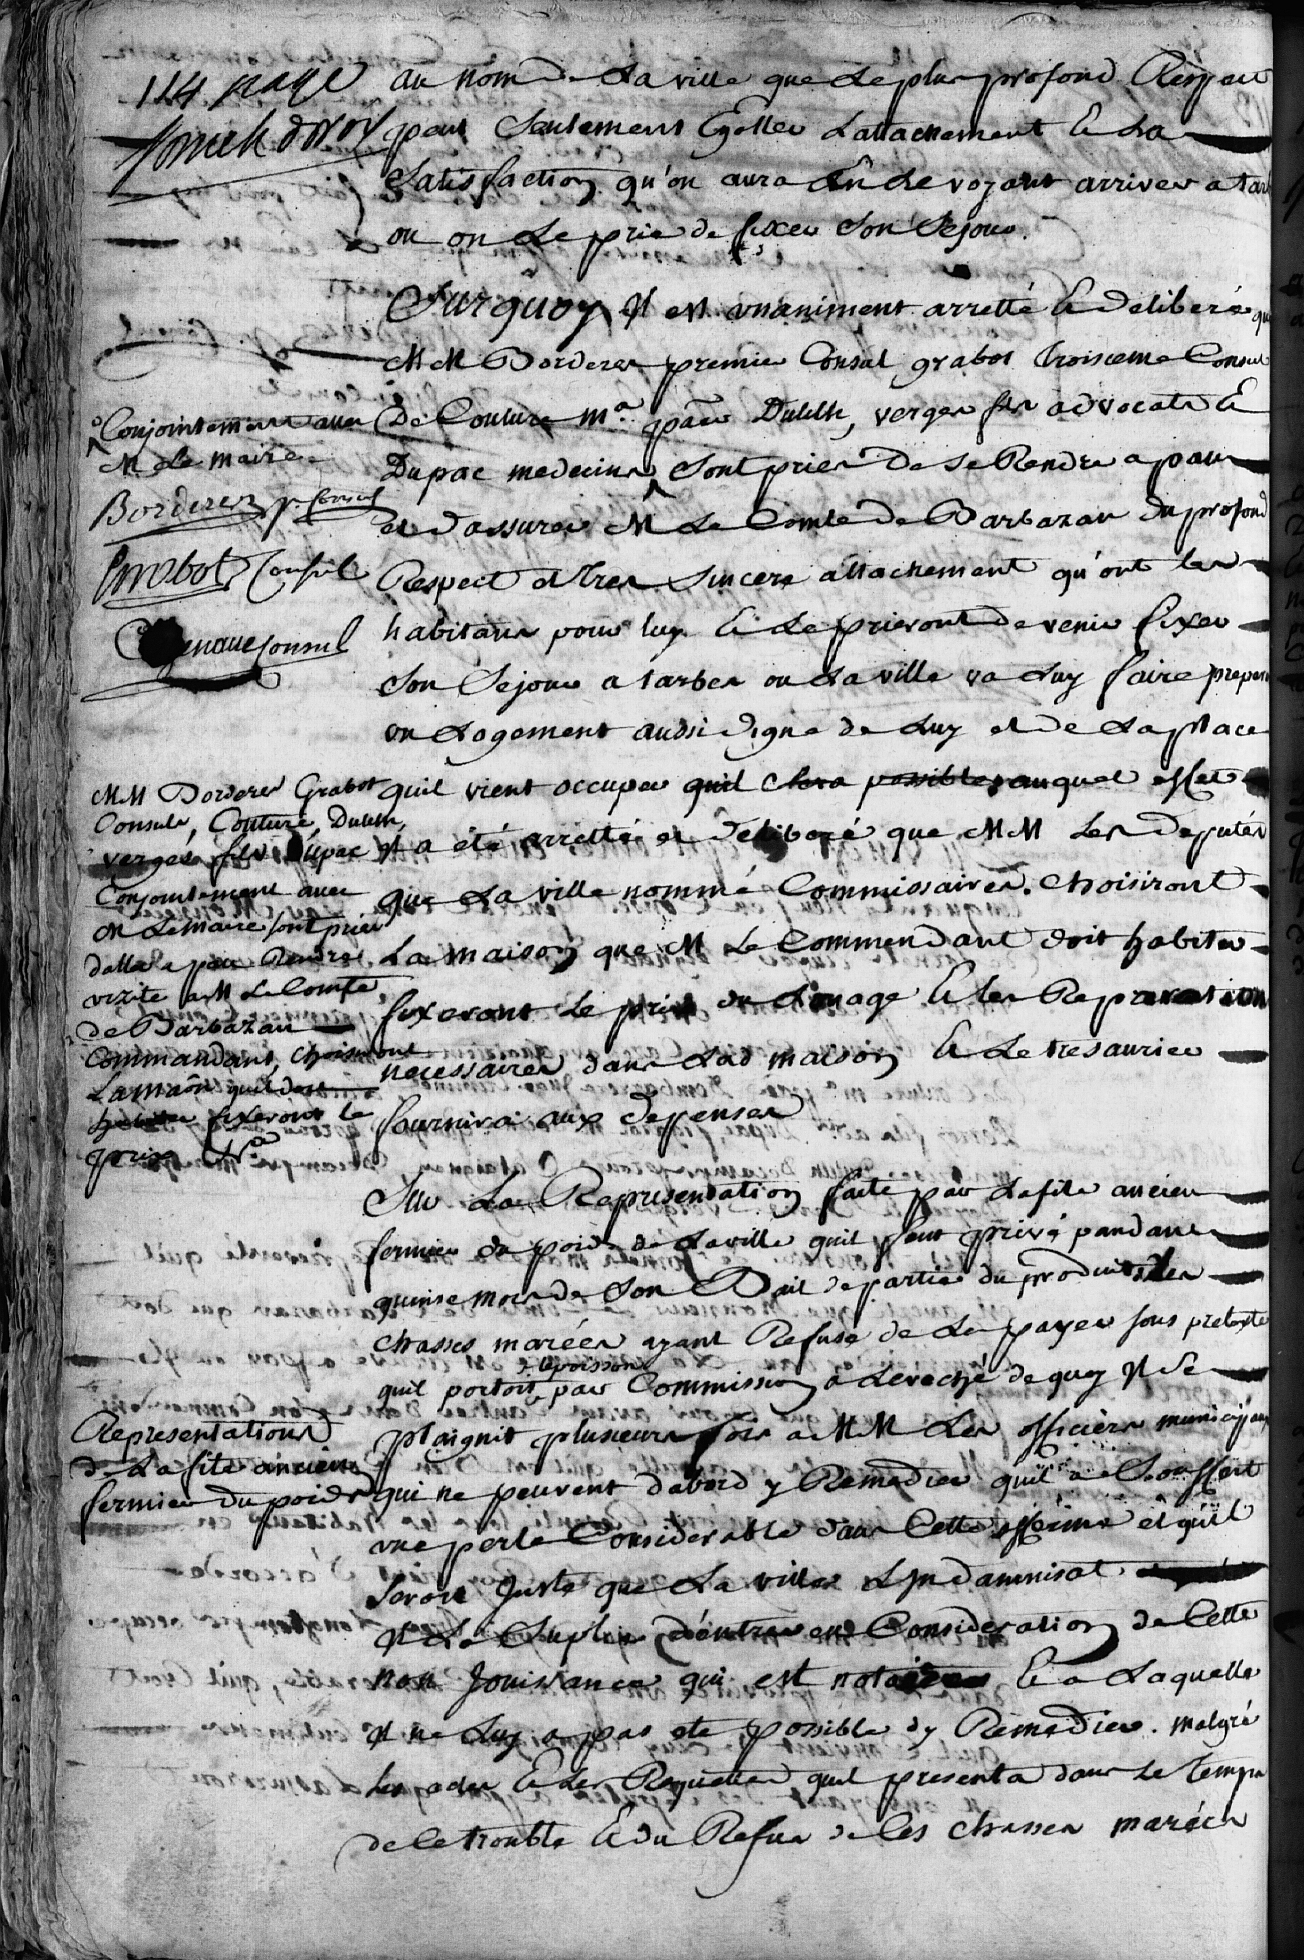 114 page
au nom de La ville que Le plus profond Respect
peut Seulement Egaller L'attachement & La
Satisfaction qu'on aura En Le voyant arriver a tar
ou on Le prie de fixer Son Sejour.
Surquoy Il est unaniment arretté & deliberé que
MM Borderes premier Consul grabot troisieme Consul
De Couture me. Dulilh, verges fils advocats &
Dupac medecins Sont pries De Se Rendre a pau
et d'assurer M Le Comte de Barbazan du profond
Respect & tres Sincere attachement qu'ont les
habitans pour luy & Le prieront de venir fixer
Son Sejour a tarbes ou La ville va Luy faire prepare
un Logement aussi digne de Luy et de La place
quil vient occuper quil Sera possible, auquel effet
Il a été arretté et deliberé que MM Les deputés
que La ville nomme Commissaires. Choisiront
La maison que M Le Commendant doit habiter
fixeront Le prix du Louage & les Reparations
necessaires dans Lad maison & Le tresaurier
fournira aux depenses
Conjointement avec
M Le maire
Borderes pr. Consul
Grabot Consul
Consul
MM Borderes Grabot
Consuls, Couture, Dulilh,
verges fils Dupac
Conjointement avec
M Le maire sont pries
daller a pau Rendre
vizite a M Le Comte
de Barbazan
Commandant, Choisiront
La maôn quil doit
habiter fixeront le
prix &ca
Sur La Representation faite par Lafite ancien
fermier du poids de La ville quil feut privé pandant
quinse mois de Son Bail de partie du produit des
chasses marées ayant Refusé de Le payer sous pretexte
quil portoit le poisson par Commission a Leveché de quoy Il Se
plaignit plusieurs fois a MM Les officiers municipaux
qui ne peuvent dabord y Remedier quil a Souffert
une perte Considerable dans Cette afferme et quil
Seroit Juste que La ville L'Indamnisat
Il La Suplie d'entrer en Consideration de Cette
non Jouissance qui est notoire & a Laquelle
Il ne Luy a pas été possible dy Remedier. malgré
les actes & Les Requettes quil presenta dans Le temps
de Ce trouble & du Refus de Ces chasses marées
Representations
de Lafite ancien
fermier du poids